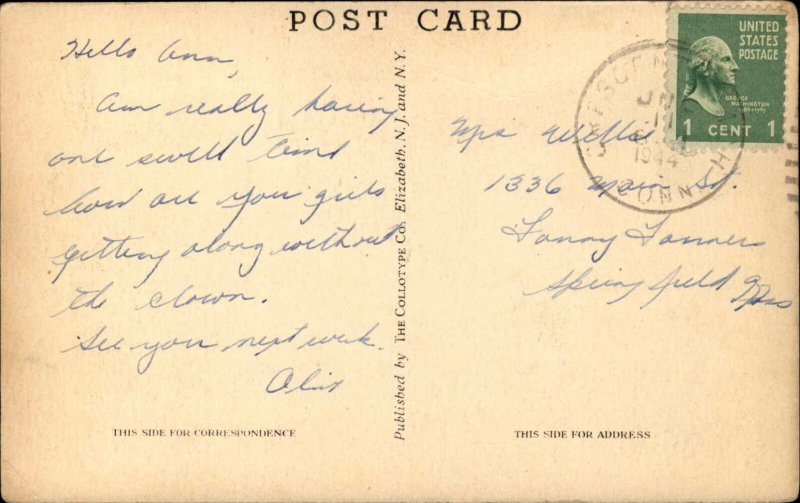 POST CARD
Hello Ann,
Am really having
one swell time
how are you girls
getting along without
the clown.
See you next week.
Published by THE COLLOTYPE Co., Elizabeth, N. J. and N. Y.
THIS SIDE FOR CORRESPONDENCE
UNITED
STATES
POSTAGE
GEORGE
WASHINGTON
1 CENT 1
1944
CONN
Mrs Willis
1336 Main St.
Fanny Farmer
Springfield Mass
THIS SIDE FOR ADDRESS